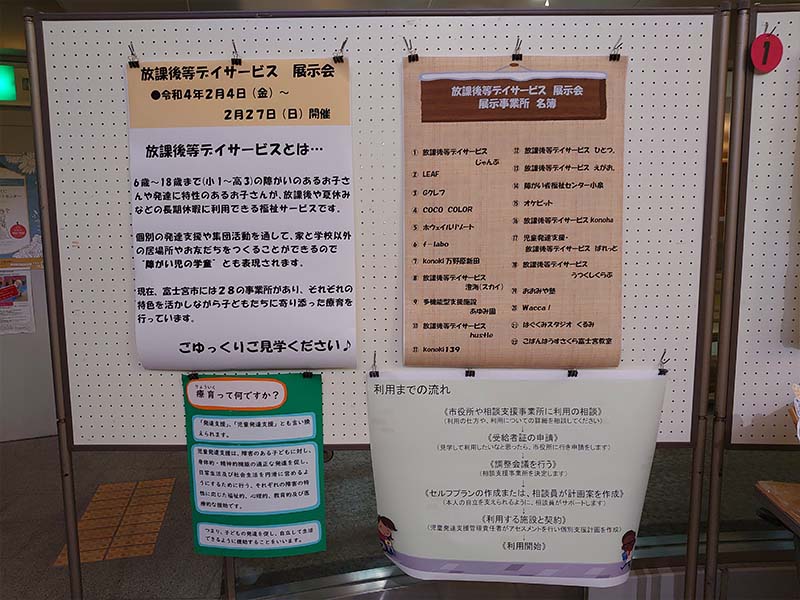 放課後等デイサービス 展示会
●令和4年2月4日(金)~
2月27日(日)開催
放課後等デイサービスとは…
6歳~18歳まで(小1~高3)の障がいのあるお子さ
んや発達に特性のあるお子さんが、放課後や夏休み
などの長期休暇に利用できる福祉サービスです。
個別の発達支援や集団活動を通して、家と学校以外
の居場所やお友だちをつくることができるので
“障がい児の学童”とも表現されます。
現在、富士宮市には28の事業所があり、それぞれの
特色を活かしながら子どもたちに寄り添った療育を
行っています。
ごゆっくりご見学ください♪
放課後等デイサービス 展示会
展示事業所 名簿
① 放課後等デイサービス
じゃんぷ
2 LEAF
3 Gクレフ
4 COCO COLOR
5 ホウェイルリゾート
6 f-labo
7 konoki 万野原新田
8 放課後等デイサービス
澄海(スカイ)
9 多機能型支援施設
あゆみ園
⑩ 放課後等デイサービス
hustle
⑪ Konoki 139
⑫ 放課後等デイサービス ひとつ。
⑬ 放課後等デイサービス えがお。
⑭ 障がい者福祉センター小泉
⑮ オケピット
⑯ 放課後等デイサービス Konoha
⑰ 児童発達支援・
放課後等デイサービス ぱれっと
⑱ 放課後等デイサービス
うつくしくらぶ
⑲ おおみや塾
⑳ Wacca!
㉑ はぐくみスタジオ くるみ
㉒ こぱんはうすさくら富士宮教室
1
りょういく
療育って何ですか?
「発達支援」、「児童発達支援」とも言い換
えられます。
児童発達支援は、障害のある子どもに対し、
身体的・精神的機能の適正な発達を促し、
日常生活及び社会生活を円滑に営めるよ
うにするために行う、それぞれの障害の特
性に応じた福祉的、心理的、教育的及び医
療的な援助です。
つまり、子どもの発達を促し、自立して生活
できるように援助することをいいます。
利用までの流れ
《市役所や相談支援事業所に利用の相談》
(利用の仕方や、利用についての詳細を相談してください)
《受給者証の申請》
(見学して利用したいなと思ったら、市役所に行き申請をします)
《調整会議を行う》
(相談支援事業所を決定します)
《セルフプランの作成または、相談員が計画案を作成》
(本人の自立を支えられるように、相談員がサポートします)
《利用する施設と契約》
(児童発達支援管理責任者がアセスメントを行い個別支援計画を作成)
《利用開始》